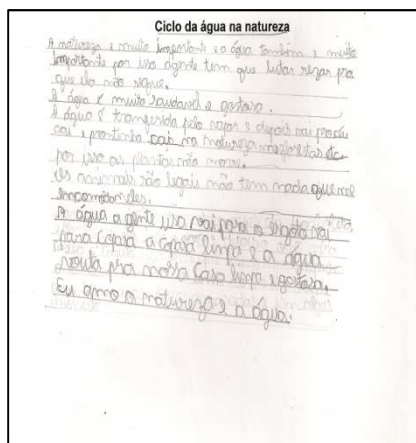 Ciclo da água na natureza
A natureza e muito importante e a água também e muito
importante por isso agente tem que lutar rezar pra
que ela não
A água é muito saudavel e gostoso.
A água é tranferida pelo vapor e depois vai pro céu
cai e prontinho cai na natureza nas florestas etc
por isso as plantas não morre.
Os animais são legais não tem nada que me
incomodam eles.
A água a gente usa vai para o esgoto vai
para copasa a copasa limpa e a água
vouta pra nossa casa limpa e gostosa.
Eu amo a natureza e a água.